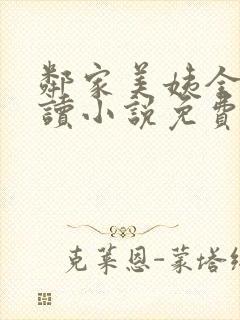 鄰家美姨全
讀小說免費
克萊恩-蒙塔